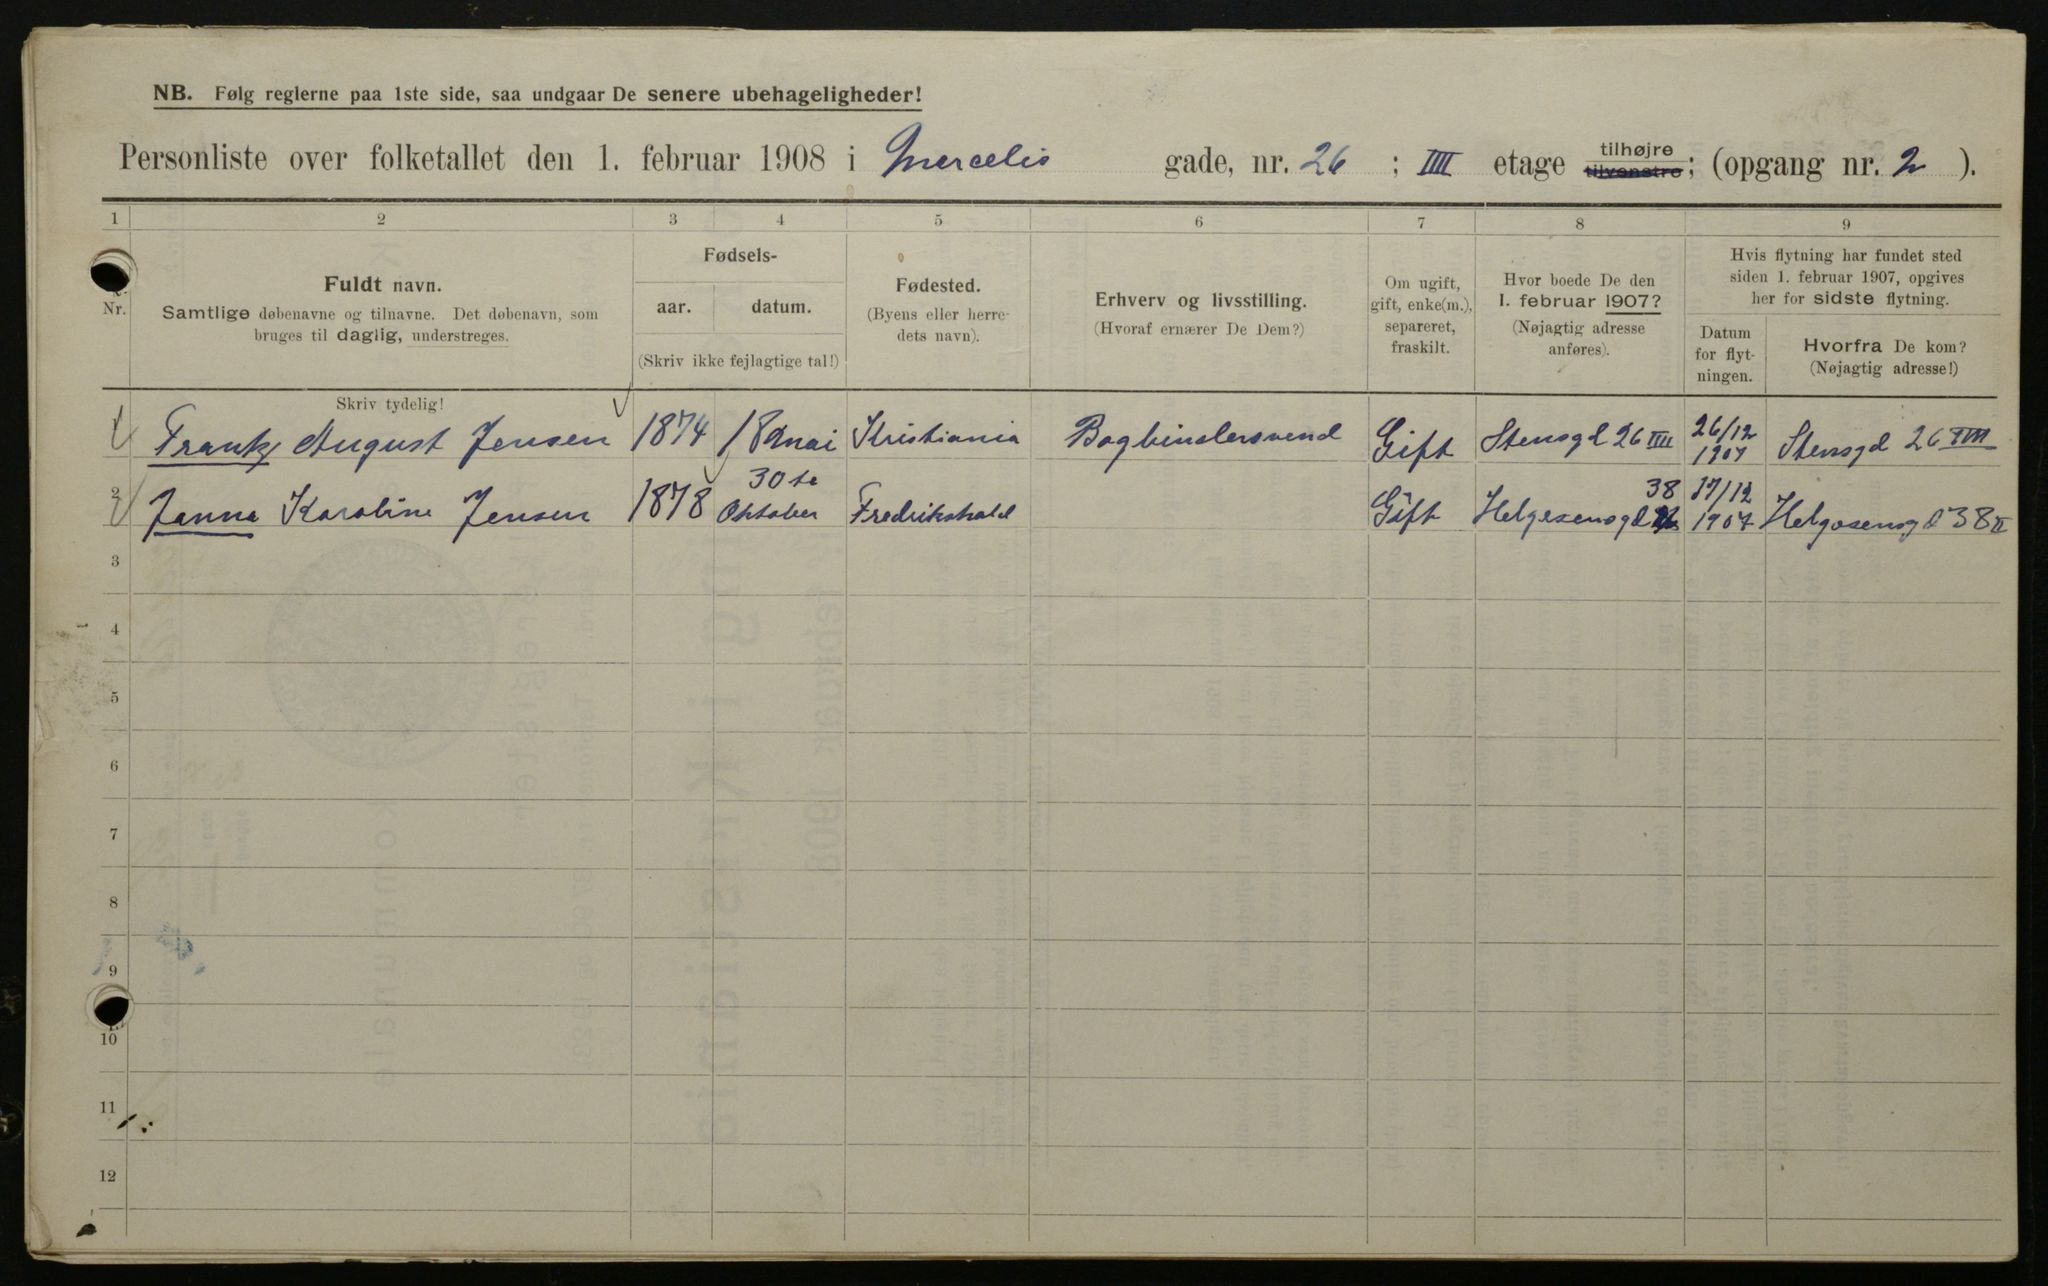 NB. Følg reglerne paa 1ste side, saa undgaar De senere ubehageligheder!
Personliste over folketallet den 1. februar 1908 i Mercelis gade, nr. 26 ; IIII etage tilhøjre tilvenstre; (opgang nr. 2 ).
1 2 3 4 5 6 7 8 9
Nr.
Fuldt navn.
Samtlige døbenavne og tilnavne. Det døbenavn, som
bruges til daglig, understreges.
Fødsels-
aar. datum.
(Skriv ikke fejlagtige tal!)
Fødested.
(Byens eller herre-
dets navn).
Erhverv og livsstilling.
(Hvoraf ernærer De Dem?)
Om ugift,
gift, enke(m.),
separeret,
fraskilt.
Hvor boede De den
1. februar 1907?
(Nøjagtig adresse
anføres).
Hvis flytning har fundet sted
siden 1. februar 1907, opgives
her for sidste flytning.
Datum
for flyt-
ningen.
Hvorfra De kom?
(Nøjagtig adresse!)
Skriv tydelig!
1 Frantz August Jensen 1874 18 mai Kristiania Bogbindersvend Gift Stensgd 26 IIII 26/12 1907 Stensgd 26 IIII
2 Janna Karoline Jensen 1878 30te Oktober Fredrikshald Gift Helgesensgd 38 17/12 1907 Helgesensgd 38 II
3
4
5
6
7
8
9
10
11
12